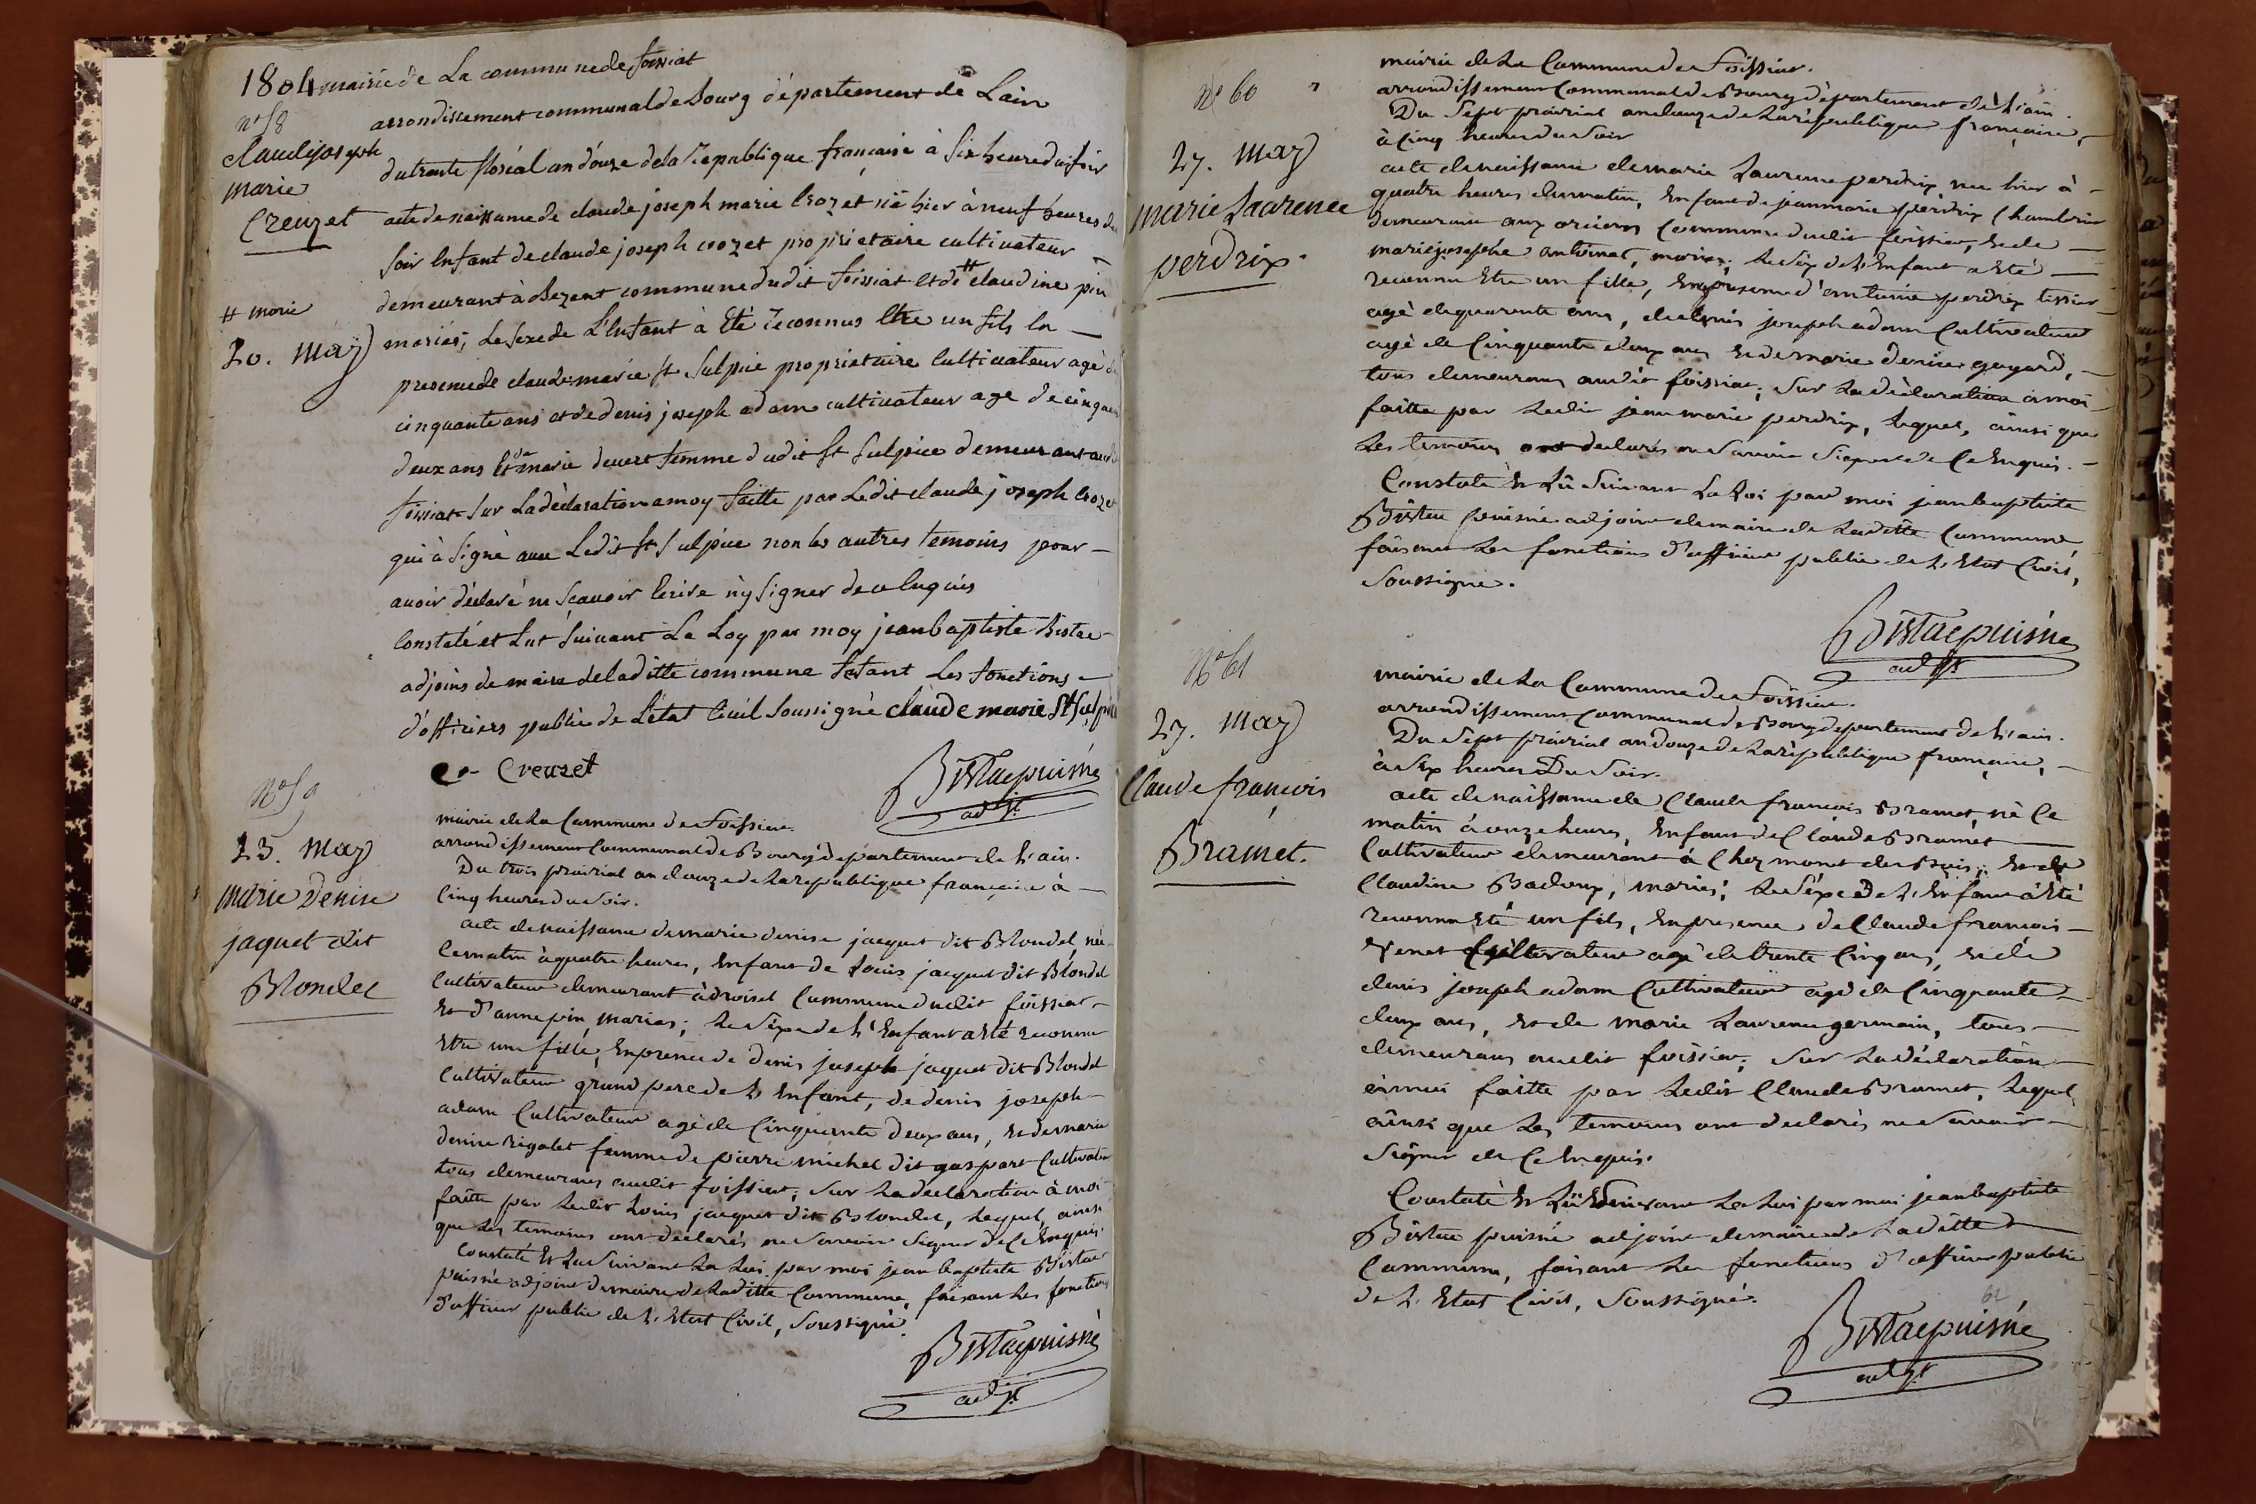 1804 mairie de La commune de foissiat
arrondissement communal de Bourg département de Lain
n° 58
claude joseph
marie
Creuzet
du trente floréal an d'ouze de la République française à six heure du soir
acte de naissance de claude joseph marie Crozet né hier à neuf heures du
soir Enfant de claude joseph crozet propriétaire cultivateur
demeurant à Bezent commune dudit foissiat et de # claudine pin
# marie
20. May
mariés; Le sexe de L'Enfant à Eté Reconnus Etre un fils En
presence de claude marie St Sulpice propriétaire Cultivateur agé de
cinquante ans et de denis joseph adam cultivateur age de cinquante
deux ans Et de marie devert femme dudit St Sulpice demeurant audit
foissiat sur La déclaration a moy faitte par Ledit claude joseph Crozet
qui à signé avec Ledit St Sulpice non les autres temoins pour
avoir déclaré ne scavoir Ecrire ny signer de ce Enquis
Constaté et Lut suivant La Loy par moy jean baptiste Bistac
adjoins de maire de laditte commune fesant Les fonctions
d'officiers public de L'état Civil soussigné claude marie St Sulpice
Creuzet
Bistac puisné
adjt
N° 59
23. May
marie Denise
jaquet dit
Blondel
mairie de La Commune de Foissiat.
arrondissement Communal de Bourg département de L'ain.
Du trois prairial an douze de La république française à
Cinq heures du Soir.
acte de naissance de marie denise jaquet dit Blondel, née
Ce matin à quatre heures, Enfant de Louis jacquet dit Blondel
Cultivateur demeurant à droisel Commune dudit foissiat
Et d'anne pin mariés; Le Sexe de L'Enfant a Eté reconnu
Etre une fille, En presence de denis joseph jaquet dit Blondel
Cultivateur grand pere de L'Enfant, de denis joseph
adam Cultivateur agé de Cinquante deux ans, Et de marie
denise rigolet femme de pierre michel dit gaspart Cultivateur
tous demeurans audit foissiat; Sur La declaration à moi
faitte par Ledit Louis jacquet dit Blondel, Lequel, ainsi
que Les temoins ont declarés ne Savoir Signer de Ce Enquis.
Constaté Et Lu Suivant La Loi par moi jean baptiste Bistac
puisné adjoint de maire de Laditte Commune, faisant Les fonctions
d'officier public de L'Etat Civil, Soussigné.
Bistac puisné
adjt
N° 60
27. May
marie Laurence
perdrix.
mairie de La Commune de Foissiat.
arrondissement Communal de Bourg département de L'ain.
Du Sept prairial an douze de La république française,
à Cinq heures du Soir
acte de naissance de marie Laurence perdrix née hier à
quatre heures du matin, Enfant de jean marie perdrix Chambrier
demeurant aux Commune dudit foissiat, Et de
marie josephe antoinet, mariés; Le Sexe de L'Enfant a Eté
reconnu Etre un fille, En presence d'antoine perdrix tissier
agé de quarante ans, de denis joseph adam Cultivateur
agé de Cinquante deux ans Et de marie denise goyard,
tous demeurans audit foissiat; Sur La déclaration à moi
faitte par Ledit jean marie perdrix, Lequel, ainsi que
Les temoins ont declarés ne Savoir Signer de Ce Enquis.
Constaté Et Lû Suivant La Loi par moi jean baptiste
Bistac puisné adjoint de maire de Laditte Commune
faisant Les fonctions d'officier public de L'Etat Civil,
Soussigné.
Bistac puisné
adjt
N° 61
27. May
Claude françois
Bramet.
mairie de La Commune de Foissiat.
arrondissement Communal de Bourg département de L'ain.
Du Sept prairial an douze de La république française,
à Six heures Du Soir.
acte de naissance de Claude françois Bramet, né Ce
matin à onze heures, Enfant de Claude Bramet
Cultivateur demeurant à Chez monet des Buis; Et de
Claudine Badoux, mariés; Le Séxe De L'Enfant à Eté
reconnu Eté un fils, En presence de Claude françois
Venet Cultivateur agé de trente Cinq ans, Et de
denis joseph adam Cultivateur agé de Cinquante
deux ans, Et de marie Laurence germain, tous
demeurans audit foissiat; Sur La déclaration
à moi faitte par Ledit Claude Bramet, Lequel,
ainsi que Les temoins ont declarés ne Savoir
Signer de Ce Enquis.
Constaté Et Lû Suivant La Loi par moi jean baptiste
Bistac puisné adjoint de maire de Laditte
Commune, faisant Les fonctions d'officier public
de L'Etat Civil, Soussigné.
62
Bistac puisné
adjt